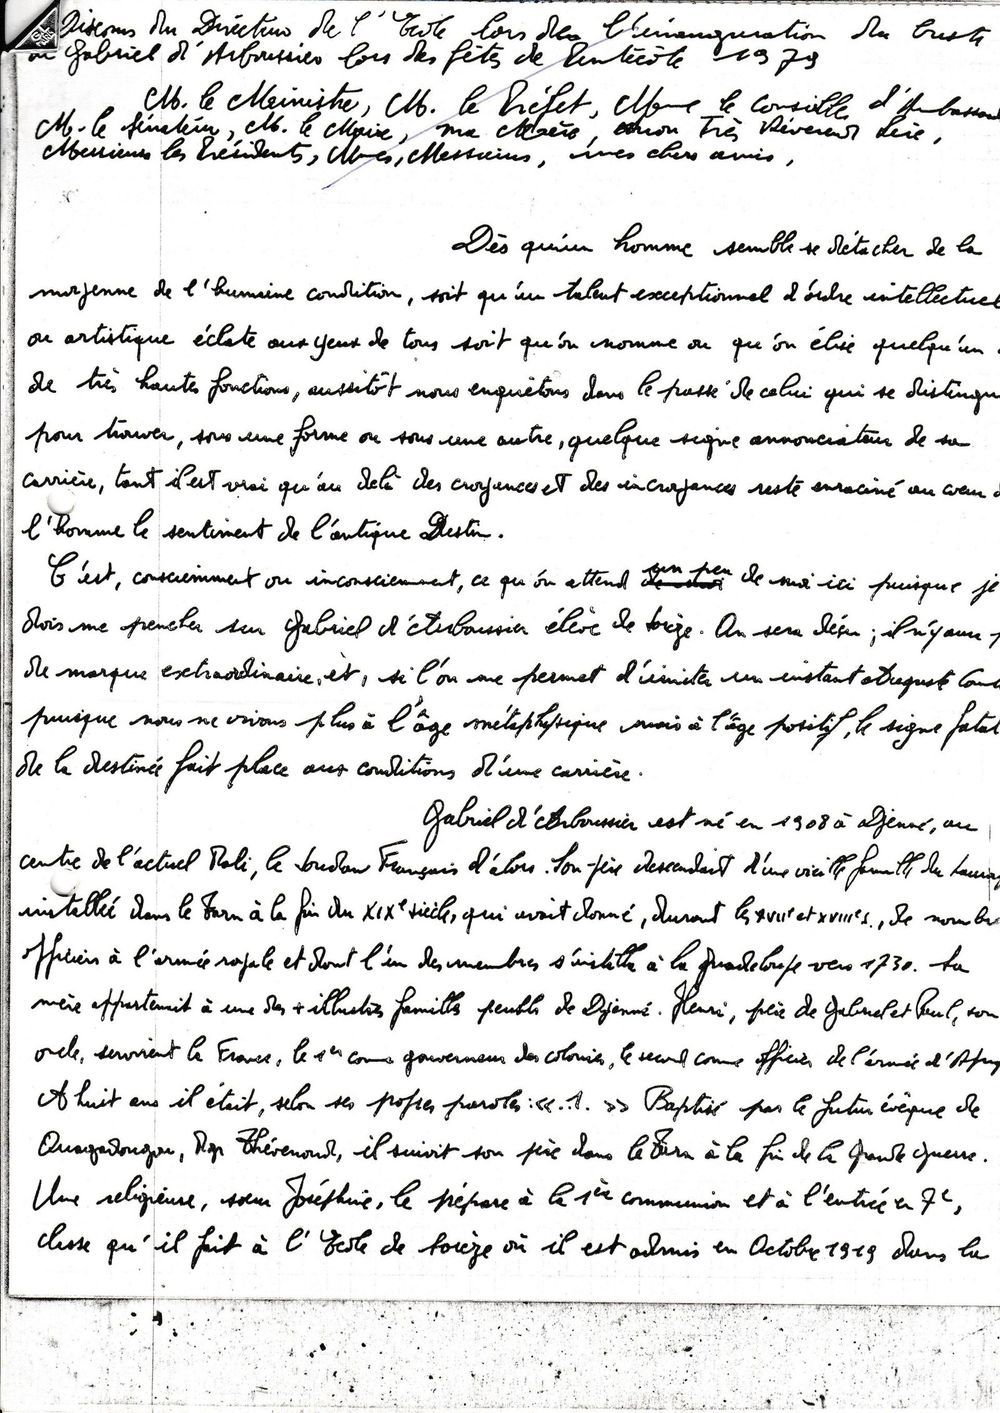 Discours du Directeur de l'Ecole lors de l'inauguration du buste
de Gabriel d'Arboussier lors des fêtes de Pentecôte 1979
M. le Ministre, M. le Préfet, Mme le Conseille d'Ambassa
M. le Sénateur, M. le Maire, ma Mère, mon Très Révérend Père,
Messieurs les Présidents, Mmes, Messieurs, mes chers amis,
Dès qu'un homme semble se détacher de la
moyenne de l'humaine condition, soit qu'un talent exceptionnel d'ordre intellectuel
ou artistique éclate aux yeux de tous soit qu'on nomme ou qu'on élise quelqu'un
de très hautes fonctions, aussitôt nous enquêtons dans le passé de celui qui se distingu
pour trouver, sous une forme ou sous une autre, quelque signe annonciateur de sa
carrière, tant il est vrai qu'au delà des croyances et des incroyances reste enraciné au coeur d
l'homme le sentiment de l'antique Destin.
C'est, consciemment ou inconsciemment, ce qu'on attend un peu de moi ici puisque je
dois me pencher sur Gabriel d'Arboussier élève de Sorèze. On sera déçu ; il n'y aura p
de marque extraordinaire, et, si l'on me permet d'imiter un instant Auguste Com
puisque nous ne vivons plus à l'âge métaphysique mais à l'âge positif, le signe fatal
de la destinée fait place aux conditions d'une carrière.
Gabriel d'Arboussier est né en 1908 à Djenné, au
centre de l'actuel Mali, le Soudan Français d'alors. Son père descendait d'une vieille famille du Laurag
installée dans le Tarn à la fin du XIXe siècle, qui avait donné, durant les XVIIe et XVIIIe s., de nombr
officiers à l'armée royale et dont l'un des membres s'installa à la Guadeloupe vers 1730. Sa
mère appartenait à une des + illustres familles peuhls de Djenné. Henri, père de Gabriel et Paul, son
oncle, servirent la France, le 1er comme gouverneur des colonies, le second comme officier de l'armée d'Afriq
A huit ans il était, selon ses propres paroles : «..1. » Baptisé par le futur évêque de
Ouagadougou, Mgr Thévenoud, il suivit son père dans le Tarn à la fin de la Grande Guerre.
Une religieuse, soeur Joséphine, le prépare à la 1ère communion et à l'entrée en 7e,
classe qu'il fait à l'Ecole de Sorèze où il est admis en Octobre 1919 dans la